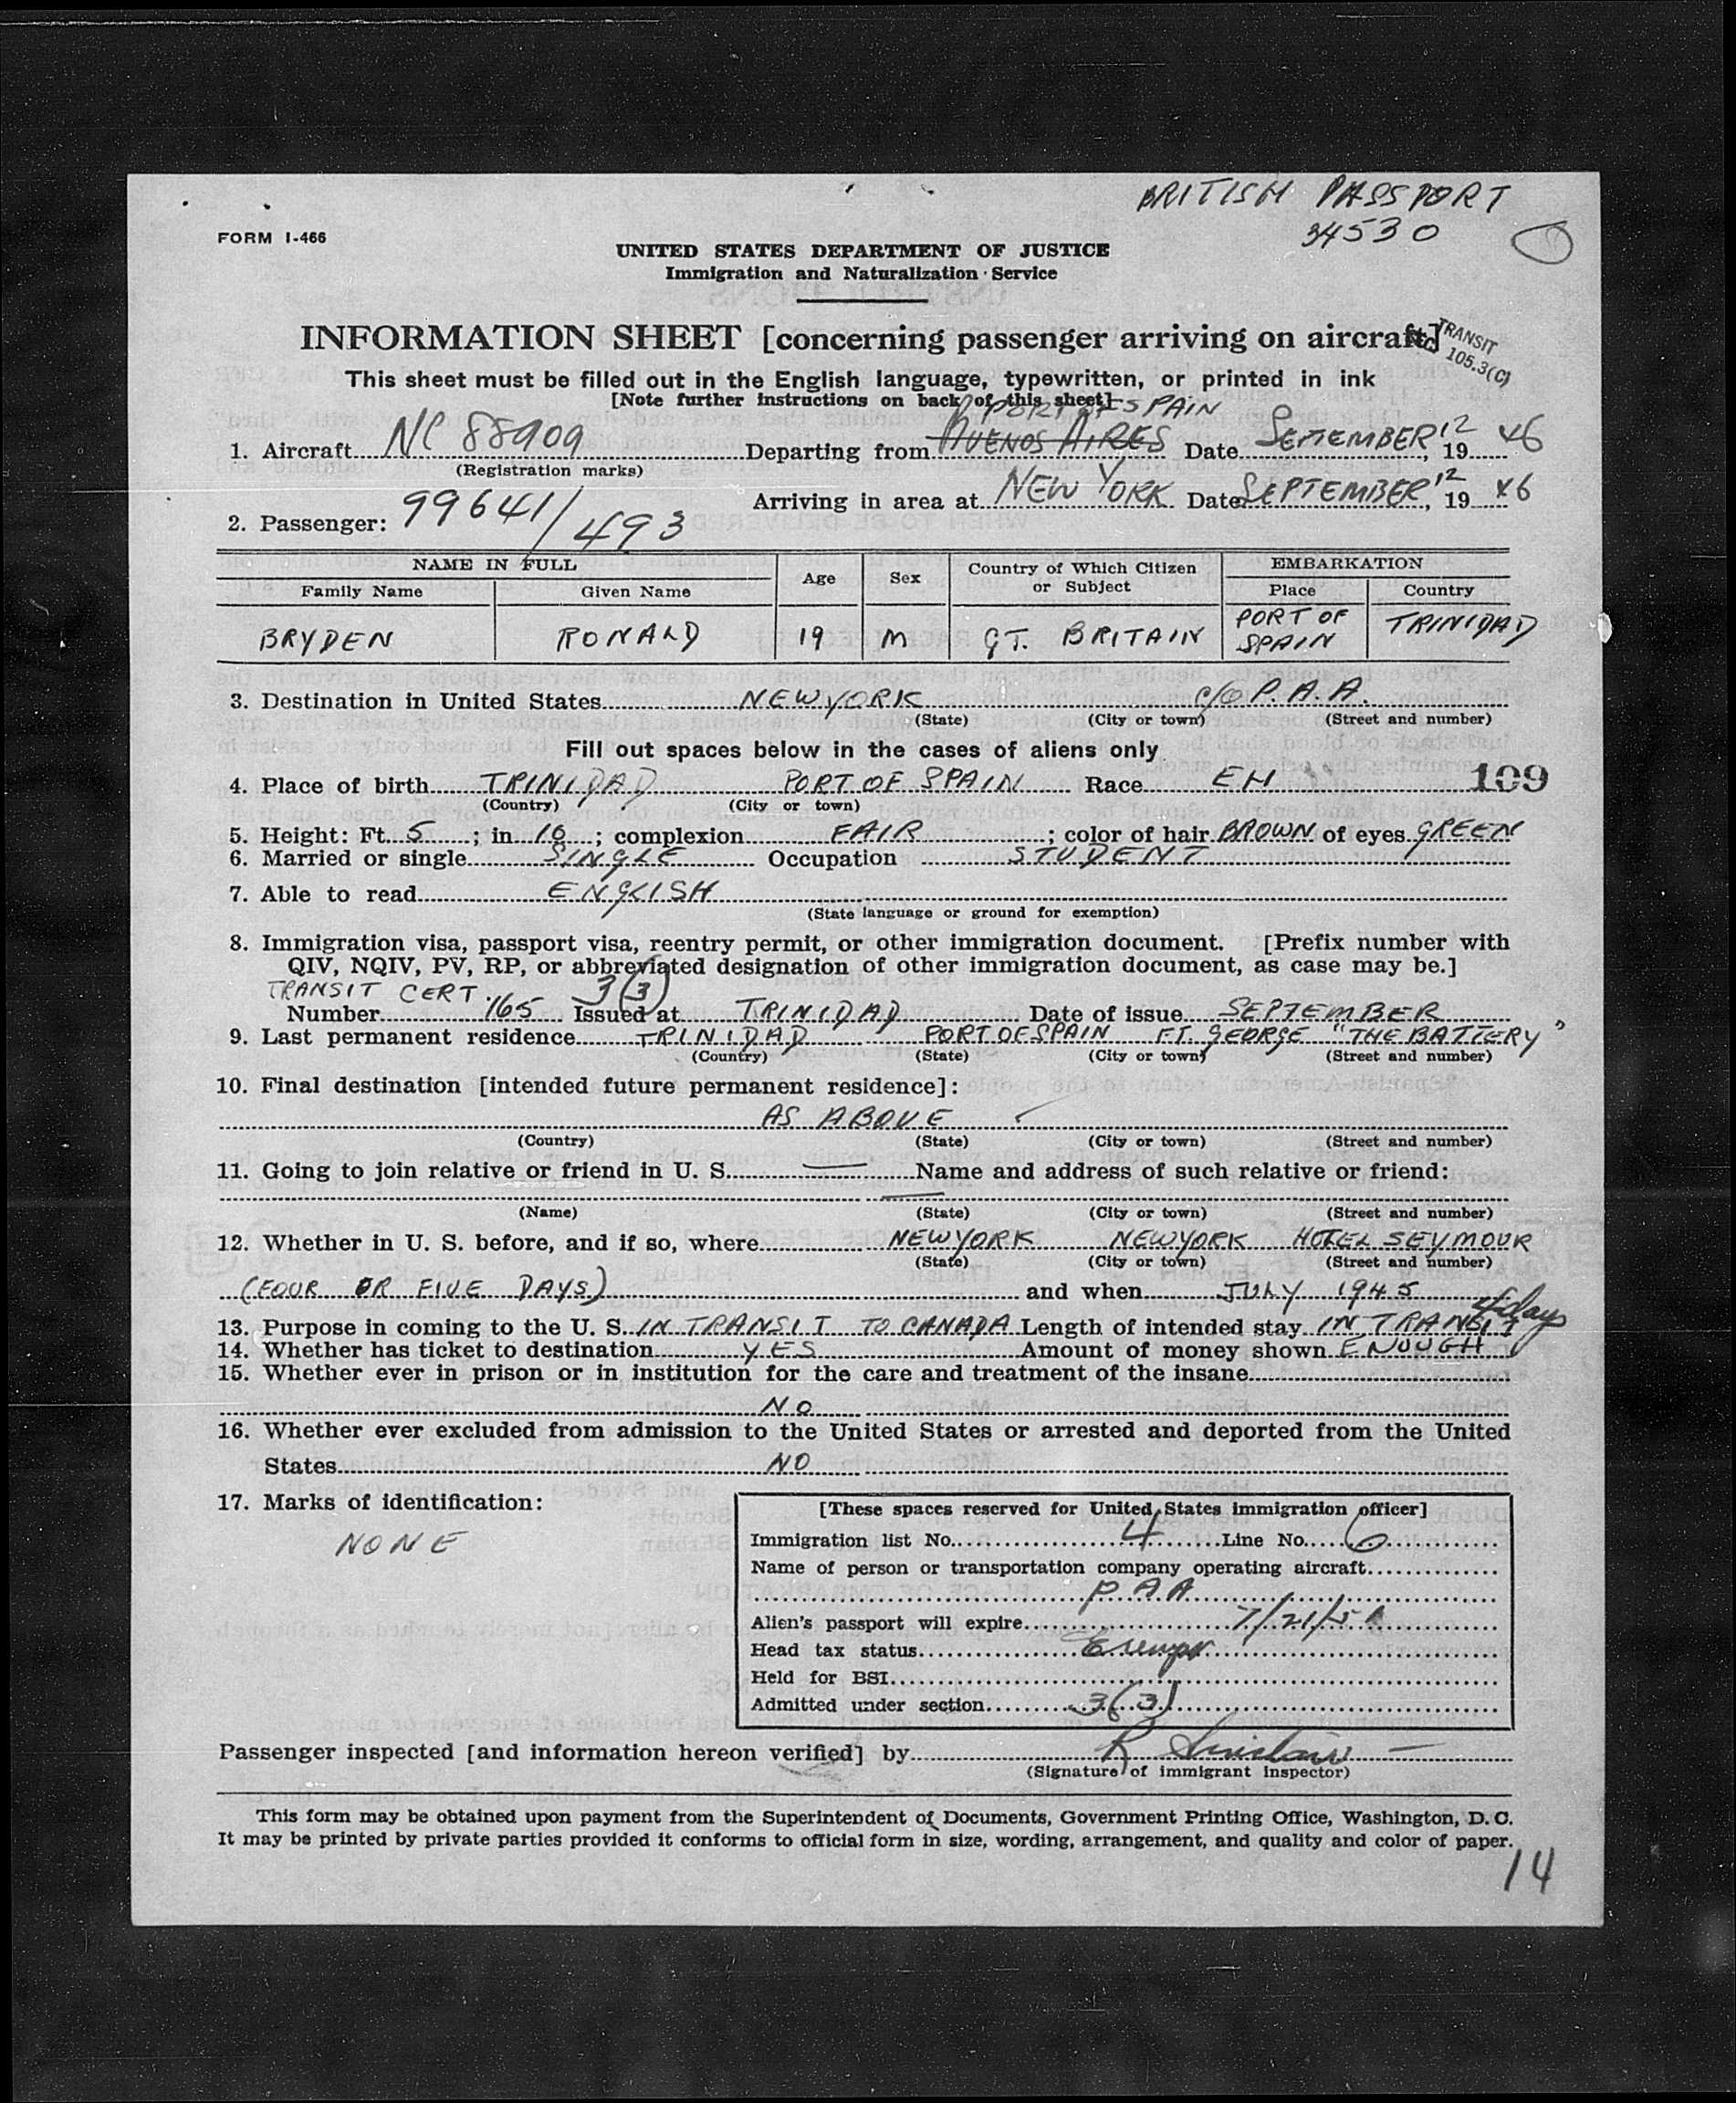 BRITISH PASSPORT
34530
FORM I-466
UNITED STATES DEPARTMENT OF JUSTICE
Immigration and Naturalization Service
INFORMATION SHEET [concerning passenger arriving on aircraft]
TRANSIT
105.3(C)
This sheet must be filled out in the English language, typewritten, or printed in ink
[Note further instructions on back of this sheet]
PORT OF SPAIN
1. Aircraft NC 88909 Departing from BUENOS AIRES Date SEPTEMBER 12, 19 46
(Registration marks)
Arriving in area at NEW YORK Date SEPTEMBER 12, 19 46
2. Passenger: 99641/493
NAME IN FULL Age Sex Country of Which Citizen or Subject EMBARKATION
Family Name Given Name Place Country
BRYDEN RONALD 19 M GT. BRITAIN PORT OF SPAIN TRINIDAD
3. Destination in United States NEW YORK c/o P.A.A.
(State) (City or town) (Street and number)
Fill out spaces below in the cases of aliens only
4. Place of birth TRINIDAD PORT OF SPAIN Race EH 109
(Country) (City or town)
5. Height: Ft. 5; in. 10; complexion FAIR; color of hair BROWN of eyes GREEN
6. Married or single SINGLE Occupation STUDENT
7. Able to read ENGLISH
(State language or ground for exemption)
8. Immigration visa, passport visa, reentry permit, or other immigration document. [Prefix number with
QIV, NQIV, PV, RP, or abbreviated designation of other immigration document, as case may be.]
TRANSIT CERT. 3(3)
Number 165 Issued at TRINIDAD Date of issue SEPTEMBER
9. Last permanent residence TRINIDAD PORT OF SPAIN FT. GEORGE "THE BATTERY"
(Country) (State) (City or town) (Street and number)
10. Final destination [intended future permanent residence]:
AS ABOVE
(Country) (State) (City or town) (Street and number)
11. Going to join relative or friend in U. S. — Name and address of such relative or friend:
—
(Name) (State) (City or town) (Street and number)
12. Whether in U. S. before, and if so, where NEW YORK NEW YORK HOTEL SEYMOUR
(State) (City or town) (Street and number)
(FOUR OR FIVE DAYS) and when JULY 1945
4 days
13. Purpose in coming to the U. S. IN TRANSIT TO CANADA Length of intended stay IN TRANSIT
14. Whether has ticket to destination YES Amount of money shown ENOUGH
15. Whether ever in prison or in institution for the care and treatment of the insane
NO
16. Whether ever excluded from admission to the United States or arrested and deported from the United
States NO
17. Marks of identification:
NONE
[These spaces reserved for United States immigration officer]
Immigration list No. 4 Line No. 6
Name of person or transportation company operating aircraft
P A A
Alien's passport will expire 7/21/51
Head tax status Exempt
Held for BSI
Admitted under section 3(3)
Passenger inspected [and information hereon verified] by R Sinclair
(Signature of immigrant inspector)
This form may be obtained upon payment from the Superintendent of Documents, Government Printing Office, Washington, D. C.
It may be printed by private parties provided it conforms to official form in size, wording, arrangement, and quality and color of paper.
14